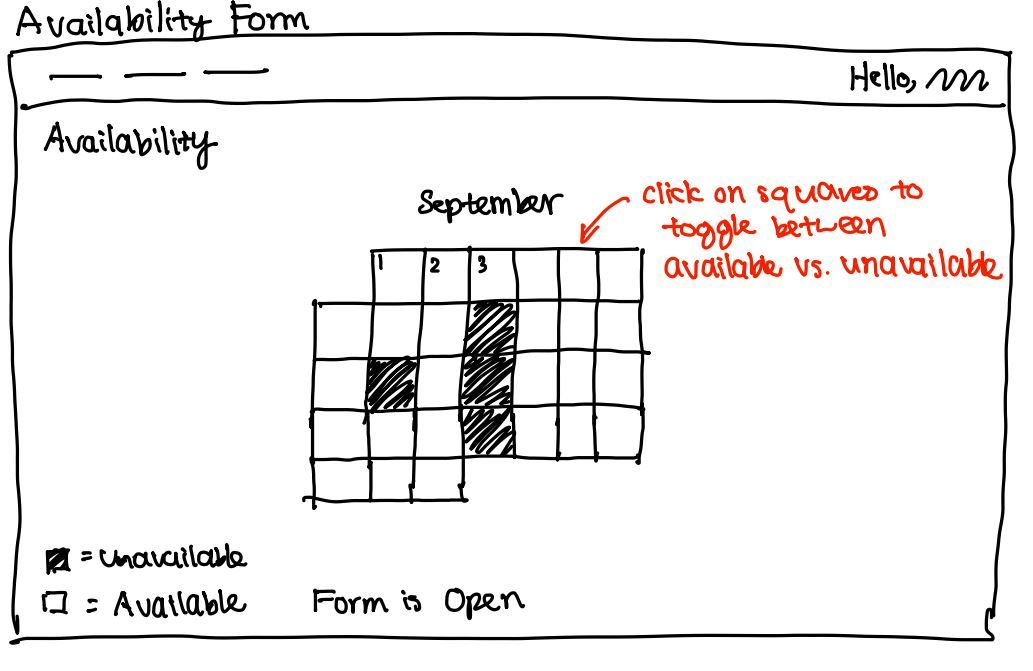 Availability Form
Hello,
Availability
September
click on squares to
toggle between
available vs. unavailable
1 2 3
= Unavailable
= Available
Form is Open